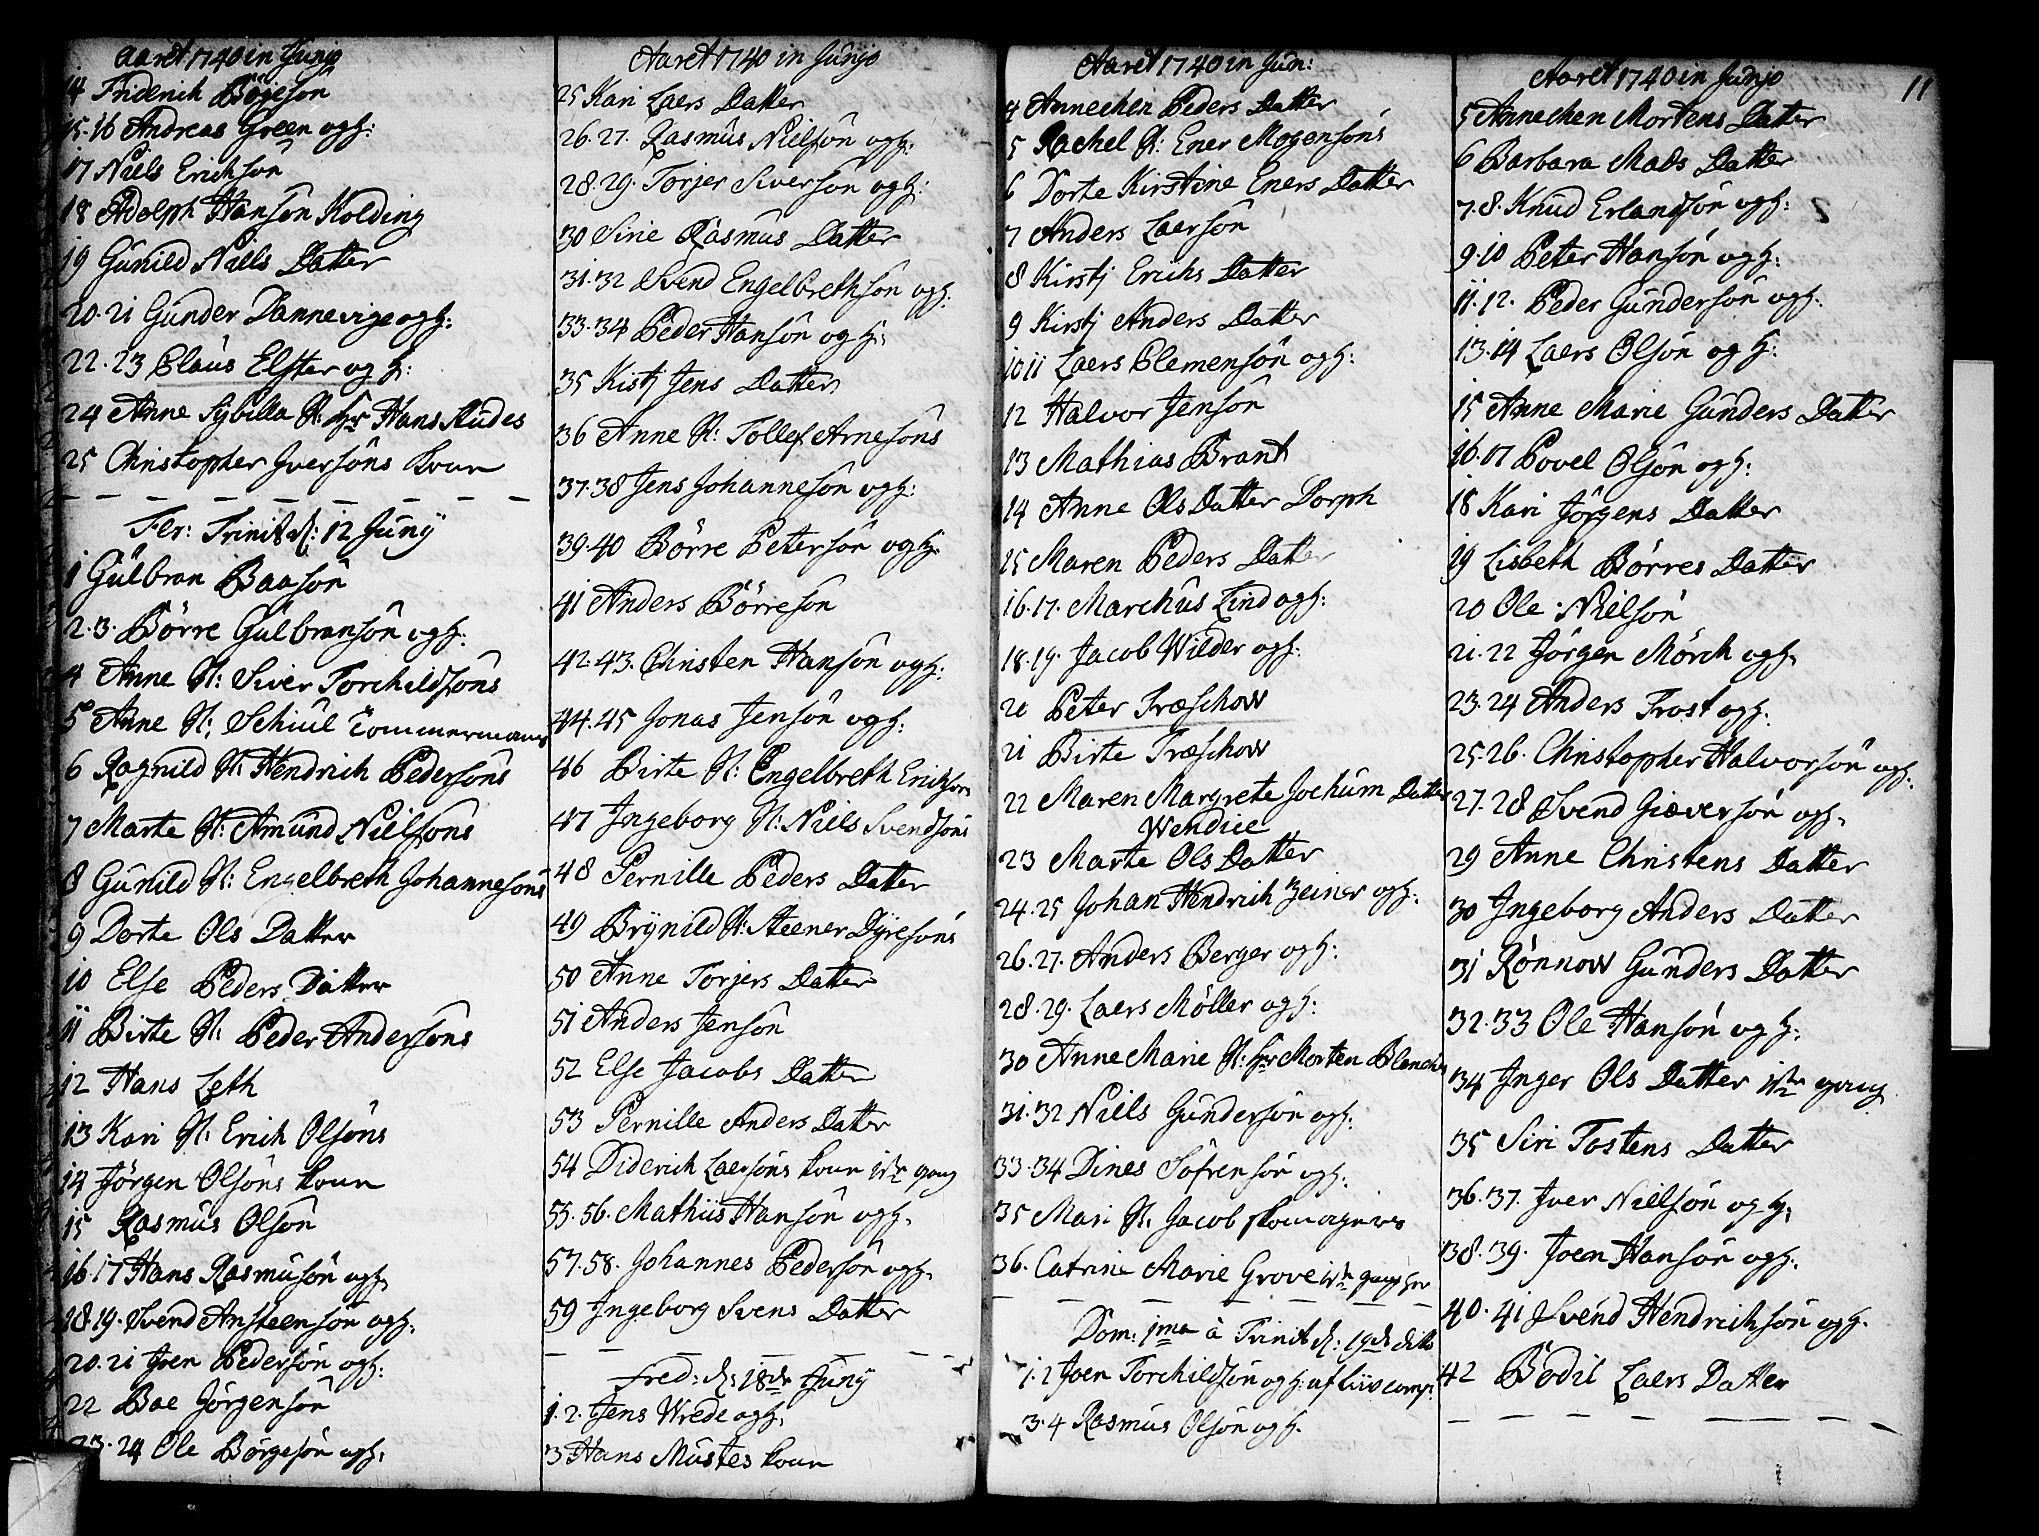 Aaret 1740 in Junjo
14 Friderich Bögeson
15.16 Andreas Green og H:
17 Niels Erichson
18 Adolph Hanson Kolding
19 Gunild Niels Datter
20.21 Gunder Dannevige og H:
22.23 Claus Elster og H:
24 Anne Sybilla N: Hr Hans Studes
25 Christopher Iversons kone
Fer: Trinit d: 12 Junÿ
1 Gulbran Baason
2.3. Börre Gulbranson og H:
4 Anne N: Siver Torchildsons
5 Anne N: Schiul Tommermans
6 Ragnild N: Hendrich Pedersons
7 Marte N: Amund Nielsons
8 Gunild N: Engelbreth Johannesons
9 Dorte Ols Datter
10 Else Peders Datter
11 Birte N: Peder Andersons
12 Hans Leth
13 Kari N: Erich Olsons
14 Jörgen Olsons kone
15 Rasmus Olson
16.17 Hans Rasmuson og H:
18.19. Svend Ansteenson og H:
20.21 Joen Pederson og H:
22 Boe Jörgenson
23.24 Ole Börgeson og H:
Aaret 1740 in Junjo
25 Kari Laers Datter
26.27. Rasmus Nielson og H:
28.29. Torjer Siverson og H:
30 Sirie Rasmus Datter
31.32 Svend Engelbrethson og H:
33.34 Peder Hanson og H:
35 Kistj Jens Datter
36 Anne N: Tollef Arnesons
37.38 Jens Johanneson og H:
39.40 Börre Peterson og H:
41 Anders Börreson
42.43. Christen Hanson og H:
44.45 Jonas Jenson og H:
46 Birte N: Engelbreth Erichson
47 Ingeborg N: Niels Svendsons
48 Pernille Peders Datter
49 Brÿnild N: Steener Dÿresons
50 Anne Torjers Datter
51 Anders Jenson
52 Else Jacobs Datter
53 Pernille Anders Datter
54 Diderich Laersons kone 1ste gang
55.56. Mathiis Hanson og H:
57.58. Johannes Pederson og H:
59 Ingeborg Svens Datter
Fred: d: 18de Junÿ
1.2. Jens Wrede og H:
3 Hans Mustes kone
Aaret 1740 in Jun:
4 Annechen Peders Datter
5 Rachel N: Ener Mogensons
6 Dorte Kirstine Eners Datter
7 Anders Laerson
8 Kirstj Erichs Datter
9 Kirstj Anders Datter
10 11 Laers Clemenson og H:
12 Halvor Jenson
13 Mathias Brant
14 Anne Ols Datter Dorph
15 Maren Peders Datter
16.17. Marchus Lind og H:
18.19. Jacob Wilder og H:
20 Peter Træschow
21 Birte Træschow
22 Maren Margrete Jochum Datter
Wendice
23 Marte Ols Datter
24.25 Johan Hendrich Zeiner og H:
26.27. Anders Berger og H:
28.29. Laers Möller og H:
30 Anne Marie N: Hr Morten Blenchs
31.32 Niels Gunderson og H:
33.34 Dines Sofrenson og H:
35 Mari N: Jacob skomagers
36. Catrine Marie Grove 1ste gang her
Dom: 1ma à Trinit d: 19de dito
1.2 Joen Torchildson og H: af liivcomp:
3.4 Rasmus Olson og H:
Aaret 1740 in Junjo 11
5 Annechen Mortens Datter
6 Barbara Mads Datter
7.8. Knud Erlandson og H:
9.10 Peter Hanson og H:
11.12. Peder Gunderson og H:
13.14 Laers Olson og H:
15 Anne Marie Gunders Datter
16.17 Povel Olson og H:
18 Kari Jörgens Datter
19 Lisbeth Börres Datter
20 Ole Nielson
21.22 Jörgen Mörch og H:
23.24 Anders Frost og H:
25.26. Christopher Halvorson og H:
27.28 Svend Giæverson og H:
29 Anne Christens Datter
30 Ingeborg Anders Datter
31 Rönnow Gunders Datter
32.33 Ole Hanson og H:
34 Inger Ols Datter 1ste gang
35 Siri Tostens Datter
36.37. Iver Nielson og H:
38.39. Joen Hanson og H:
40.41 Svend Hendrichson og H:
42 Bodil Laers Datter